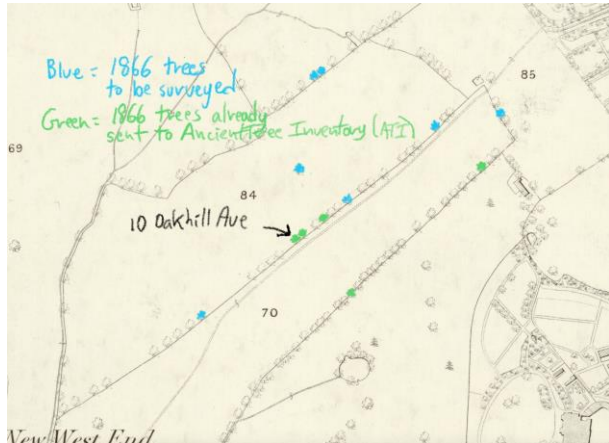 Blue = 1866 trees
to be surveyed
85
Green = 1866 trees already
sent to Ancient Tree Inventory (ATI)
69
84
10 Oakhill Ave
70
New West End